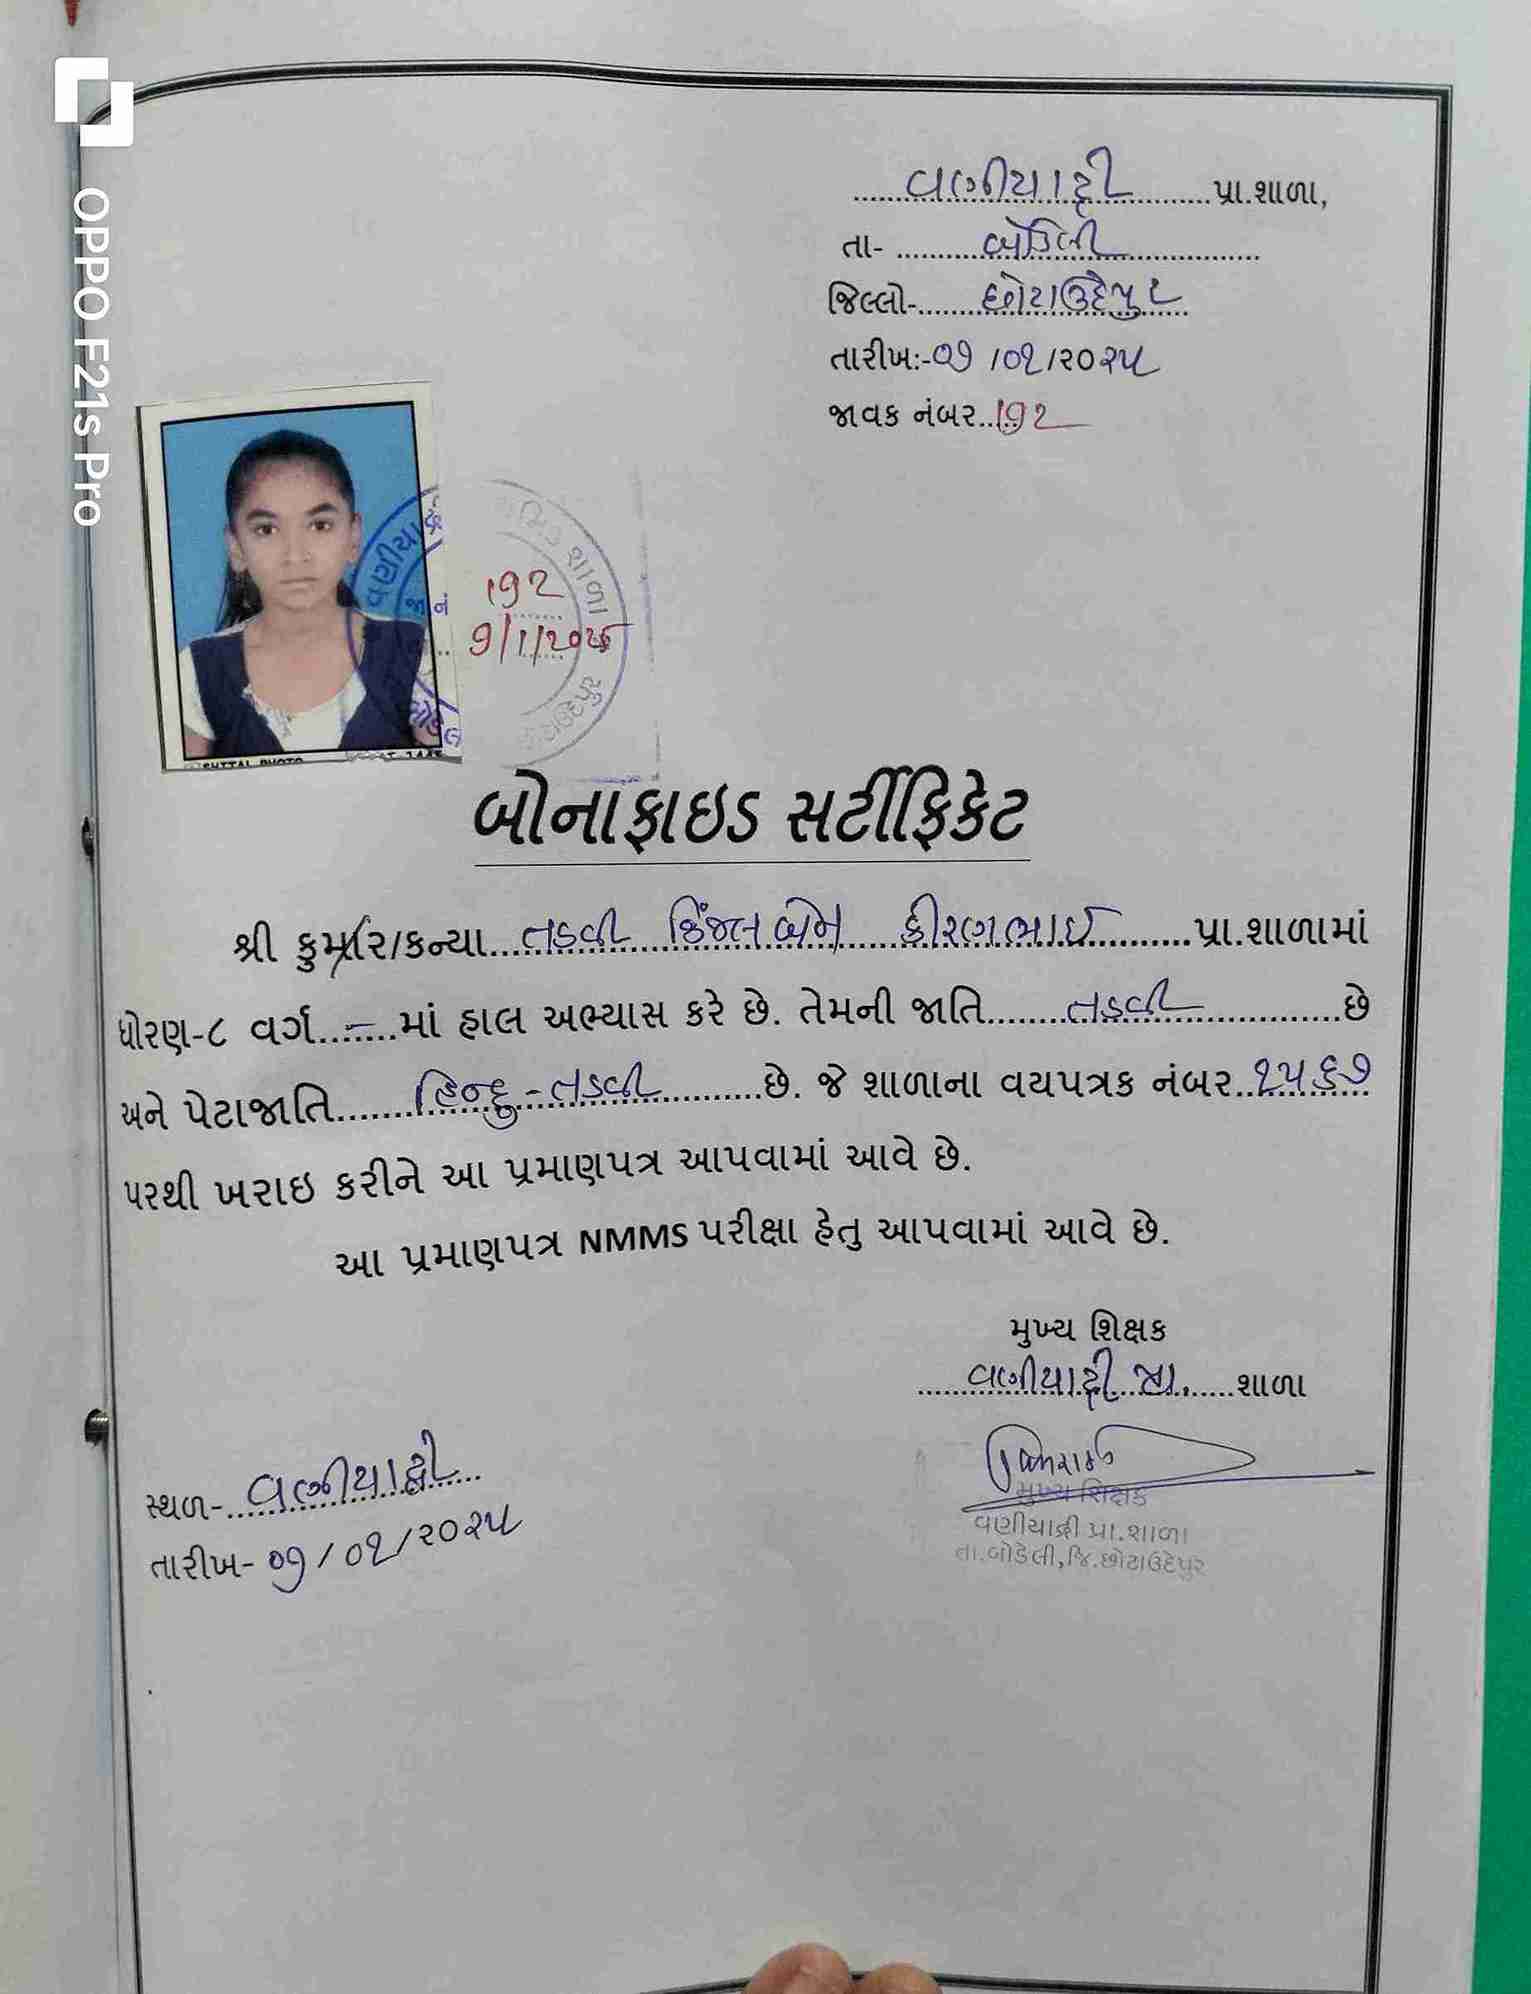 વણીયાદ્રી પ્રા.શાળા,
તા- બોડેલી
જિલ્લો- છોટાઉદેપુર
તારીખઃ-૦૧/૦૧/૨૦૨૫
જાવક નંબર..૧૭૨
OPPO F21s Pro
વણીયા
શાળા
૧૭૨
૧/૧/૨૦૨૫
SHITAL PHOTO
બોનાફાઇડ સર્ટીફિકેટ
શ્રી કુમાર/કન્યા તડવી કિંજલબેન કીરણભાઈ પ્રા.શાળામાં
ધોરણ-૮ વર્ગ - માં હાલ અભ્યાસ કરે છે. તેમની જાતિ તડવી છે
અને પેટાજાતિ હિન્દુ-તડવી છે. જે શાળાના વયપત્રક નંબર ૨૫૬૭
પરથી ખરાઇ કરીને આ પ્રમાણપત્ર આપવામાં આવે છે.
આ પ્રમાણપત્ર NMMS પરીક્ષા હેતુ આપવામાં આવે છે.
મુખ્ય શિક્ષક
વણીયાદ્રી પ્રા. શાળા
સ્થળ- વણીયાદ્રી
તારીખ- ૦૧/૦૧/૨૦૨૫
મુખ્ય શિક્ષક
વણીયાદ્રી પ્રા.શાળા
તા.બોડેલી,જિ.છોટાઉદેપુર